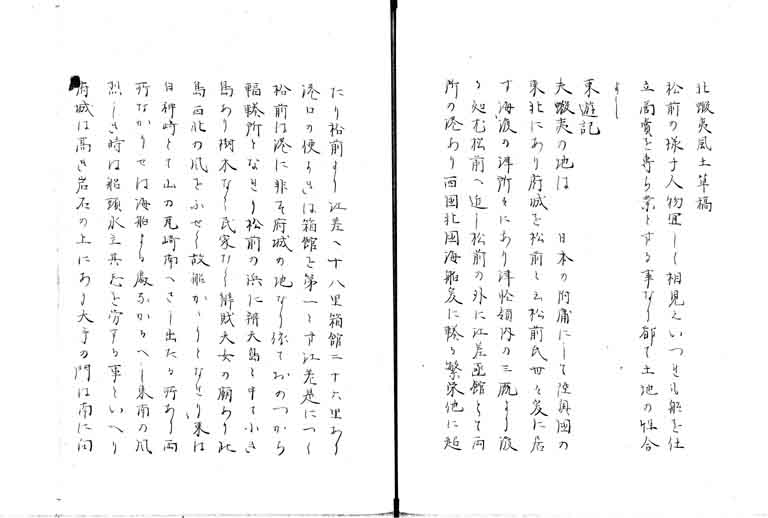 北蝦夷風土草稿
松前の様子人物宜しく相見えいつとも船を仕
立商賣を専ら業とする事なり都て土地の性合
よし
東遊記
夫蝦夷の地は 日本の附庸にして陸奥国の
東北にあり府城を松前と云松前氏世々爰に居
す海渡の津所々にあり津軽領内の三厩より渡
る処む松前へ近し松前の外に江差函館とて両
所の港あり西国北国海船爰に輳る繁栄他に超
たり松前より江差へ十八里箱館二十六里あり
港口の便よきは箱館を第一とす江差是につく
松前は港に非す府城の地なり依ておのつから
輻輳所となせり松前の浜に弁天島と申て小き
島あり樹木なし民家なし 財天女の廟あり此
島西北の風をふせく故船かゝりとなせり東は
日神崎とて山の尾崎南へさし出たる所あり両
所なかりせは海船よる處なかるへし東南の風
烈しき時は船頭水主共心を労する事といへり
府城は高き岩石の上にあり大手の門は南に向